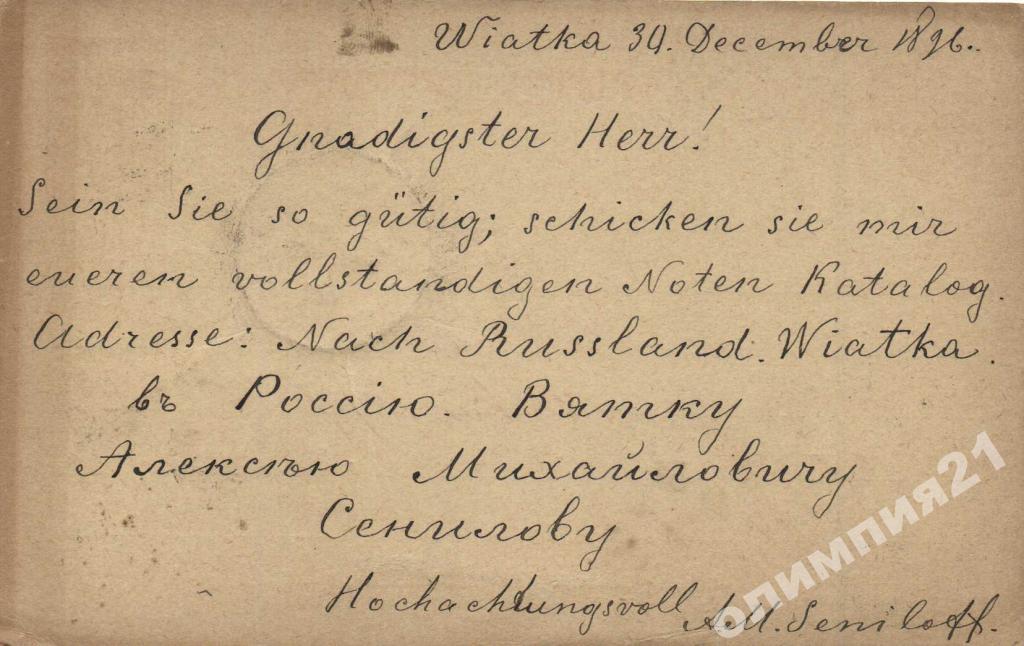 Wiatka 30. December 1896.
Gnadigster Herr!
Sein Sie so gütig; schicken sie mir
eueren vollstandigen Noten Katalog.
Adresse: Nach Russland. Wiatka.
въ Россію. Вятку
Алексѣю Михайловичу
Сенилову
Hochachtungsvoll A.M. Seniloff.
олимпия21